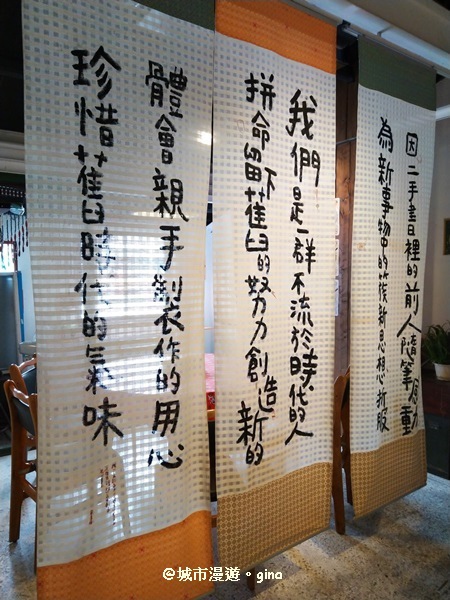 因二手書裡的前人隨筆感動
為新事物中的簇新思想折服
我們是一群不流於時代的人
拼命留下舊的努力創造新的
體會親手製作的用心
珍惜舊時代的氣味
@城市漫遊。gina